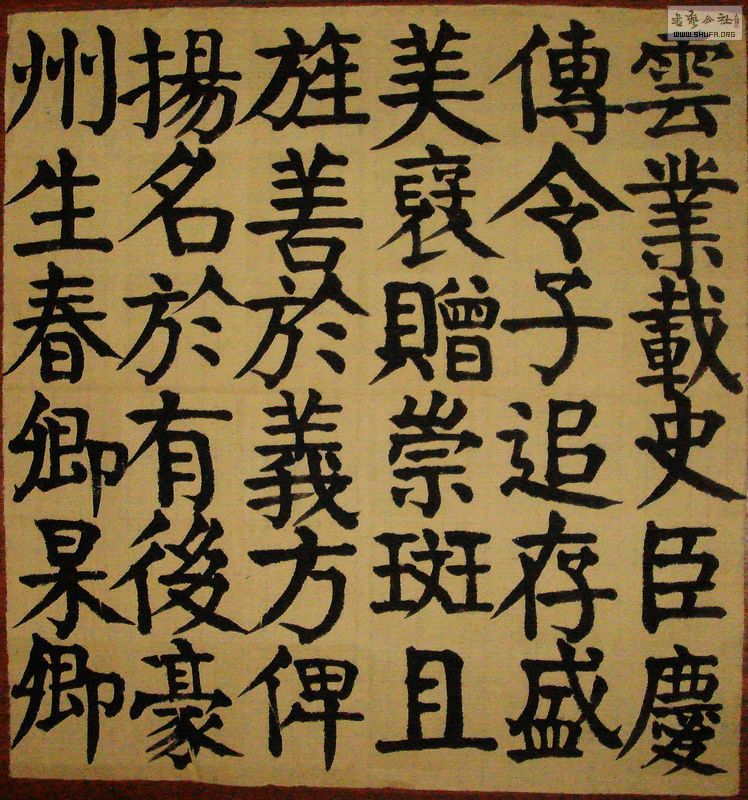 雲業載史臣慶
傳令子追存盛
美襃贈崇班且
旌善於義方俾
揚名於有後豪
州生春卿杲卿
书艺公社
WWW.SHUFA.ORG